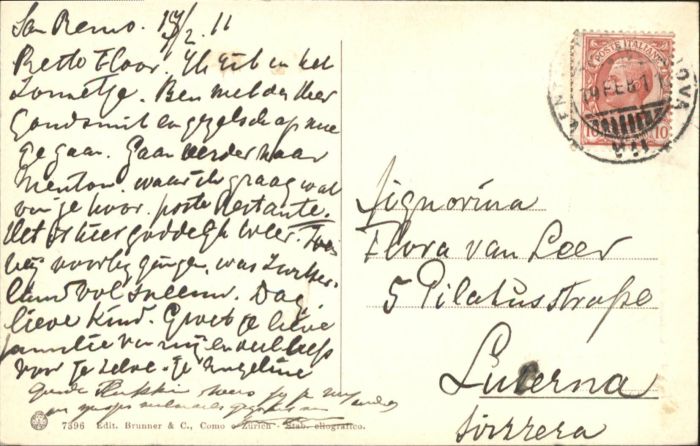 San Remo. 19/2. 11
Beste Floor. Ik zit in het
zonnetje. Ben met den Heer
Goudsmit en gezelschap mee
ge gaan. Gaan verder naar
Menton. waar ik graag wat
van je hoor. poste Restante.
Het is hier goddelijk weer. Toen
wij voorbij gingen. was Zwitser-
land vol sneeuw. Dag
lieve kind. Groet je lieve
familie van mij en veel liefs
voor je zelve. je Angeline
POSTE ITALIANE
19 FEB 11
10 10
Signorina
Flora van Leer
5 Pilatusstraße
Luzerna
Svizzera
7596 Edit. Brunner & C., Como - Zürich - Stab. eliografico.